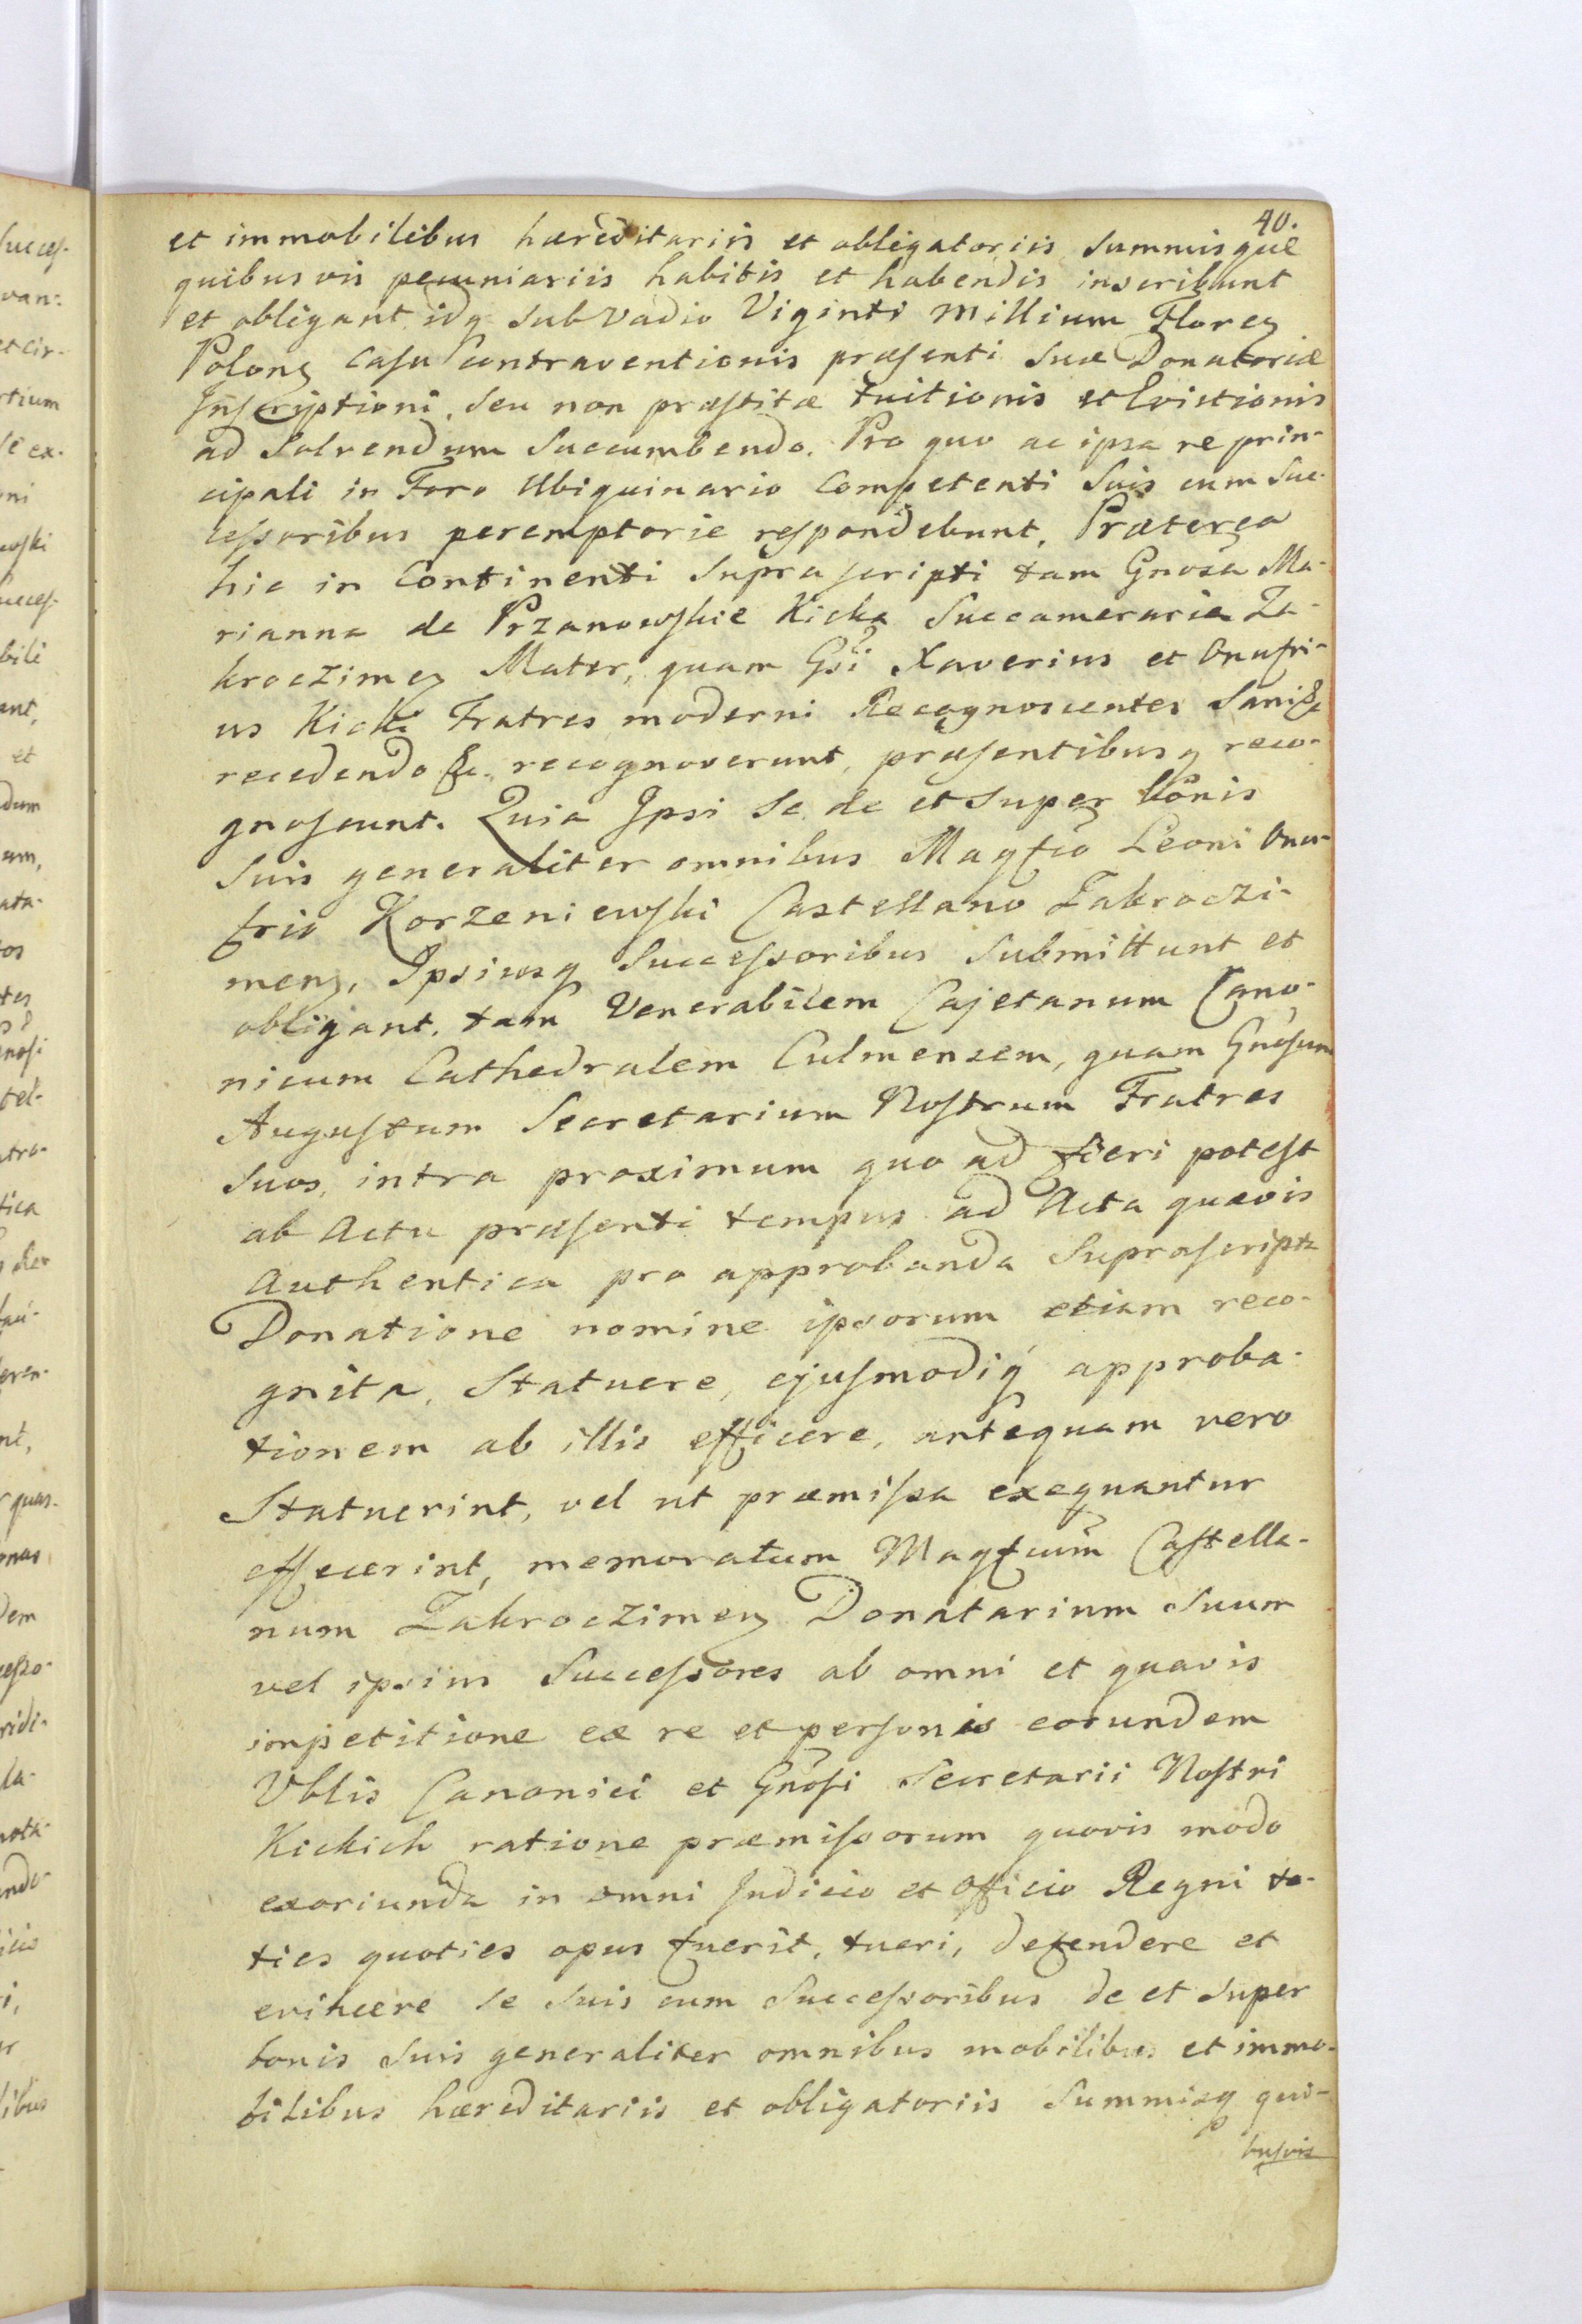 40.
et immobilibus hæreditariis et obligatoriis summisque
quibusvis pecuniariis habitis et habendis inscribunt
et obligant idq sub vadio Viginti Millium Floren
Polon casu contraventionis præsenti suæ Donatoriæ
Inscriptioni, seu non præstitæ tuitionis et Evictionis
ad Solvendum Succumbendo. Pro quo ac ipsa re prin-
cipali in Foro Ubiquinario Competenti Suis cum Suc-
cessoribus peremptorie respondebunt. Præterea
hic in Continenti Suprascripti tam Gnosa Ma-
rianna de Przanowskie Kicka Succameraria Za-
kroczimen Mater, quam Gsi Xaverius et Onufri-
us Kicki Fratres moderni Recognoscentes Sani &c
recedendo &c. recognoverunt, præsentibusq reco-
gnoscunt. Quia Ipsi Se de et super bonis
Suis generaliter omnibus Magfco Leoni Onu-
frio Korzeniewski Castellano Zakroczi-
men, Ipsiusq Successoribus Submittunt et
obligant, tam Venerabilem Cajetanum Cano-
nicum Cathedralem Culmensem, quam Gnosum
Augustum Secretarium Nostrum Fratres
Suos, intra proximum quo ad fieri potest
ab Actu præsenti tempus ad Acta quævis
Authentica pro approbanda Suprascripta
Donatione nomine ipsorum etiam reco-
gnita, Statuere, ejusmodiq approba-
tionem ab illis efficere, antequam vero
Statuerint, vel ut præmissa exequantur
effecerint, memoratum Magfcum Castella-
num Zakroczimen Donatarium Suum
vel ipsius Successores ab omni et quavis
impetitione ex re et personis eorundem
Vblis Canonici et Gnosi Secretarii Nostri
Kickich ratione præmissorum quovis modo
exoriunda in omni Judicio et Officio Regni to-
ties quoties opus fuerit, tueri, defendere et
evincere se suis cum Successoribus de et super
bonis suis generaliter omnibus mobilibus et immo-
bilibus hæreditariis et obligatoriis Summisq qui-
busvis